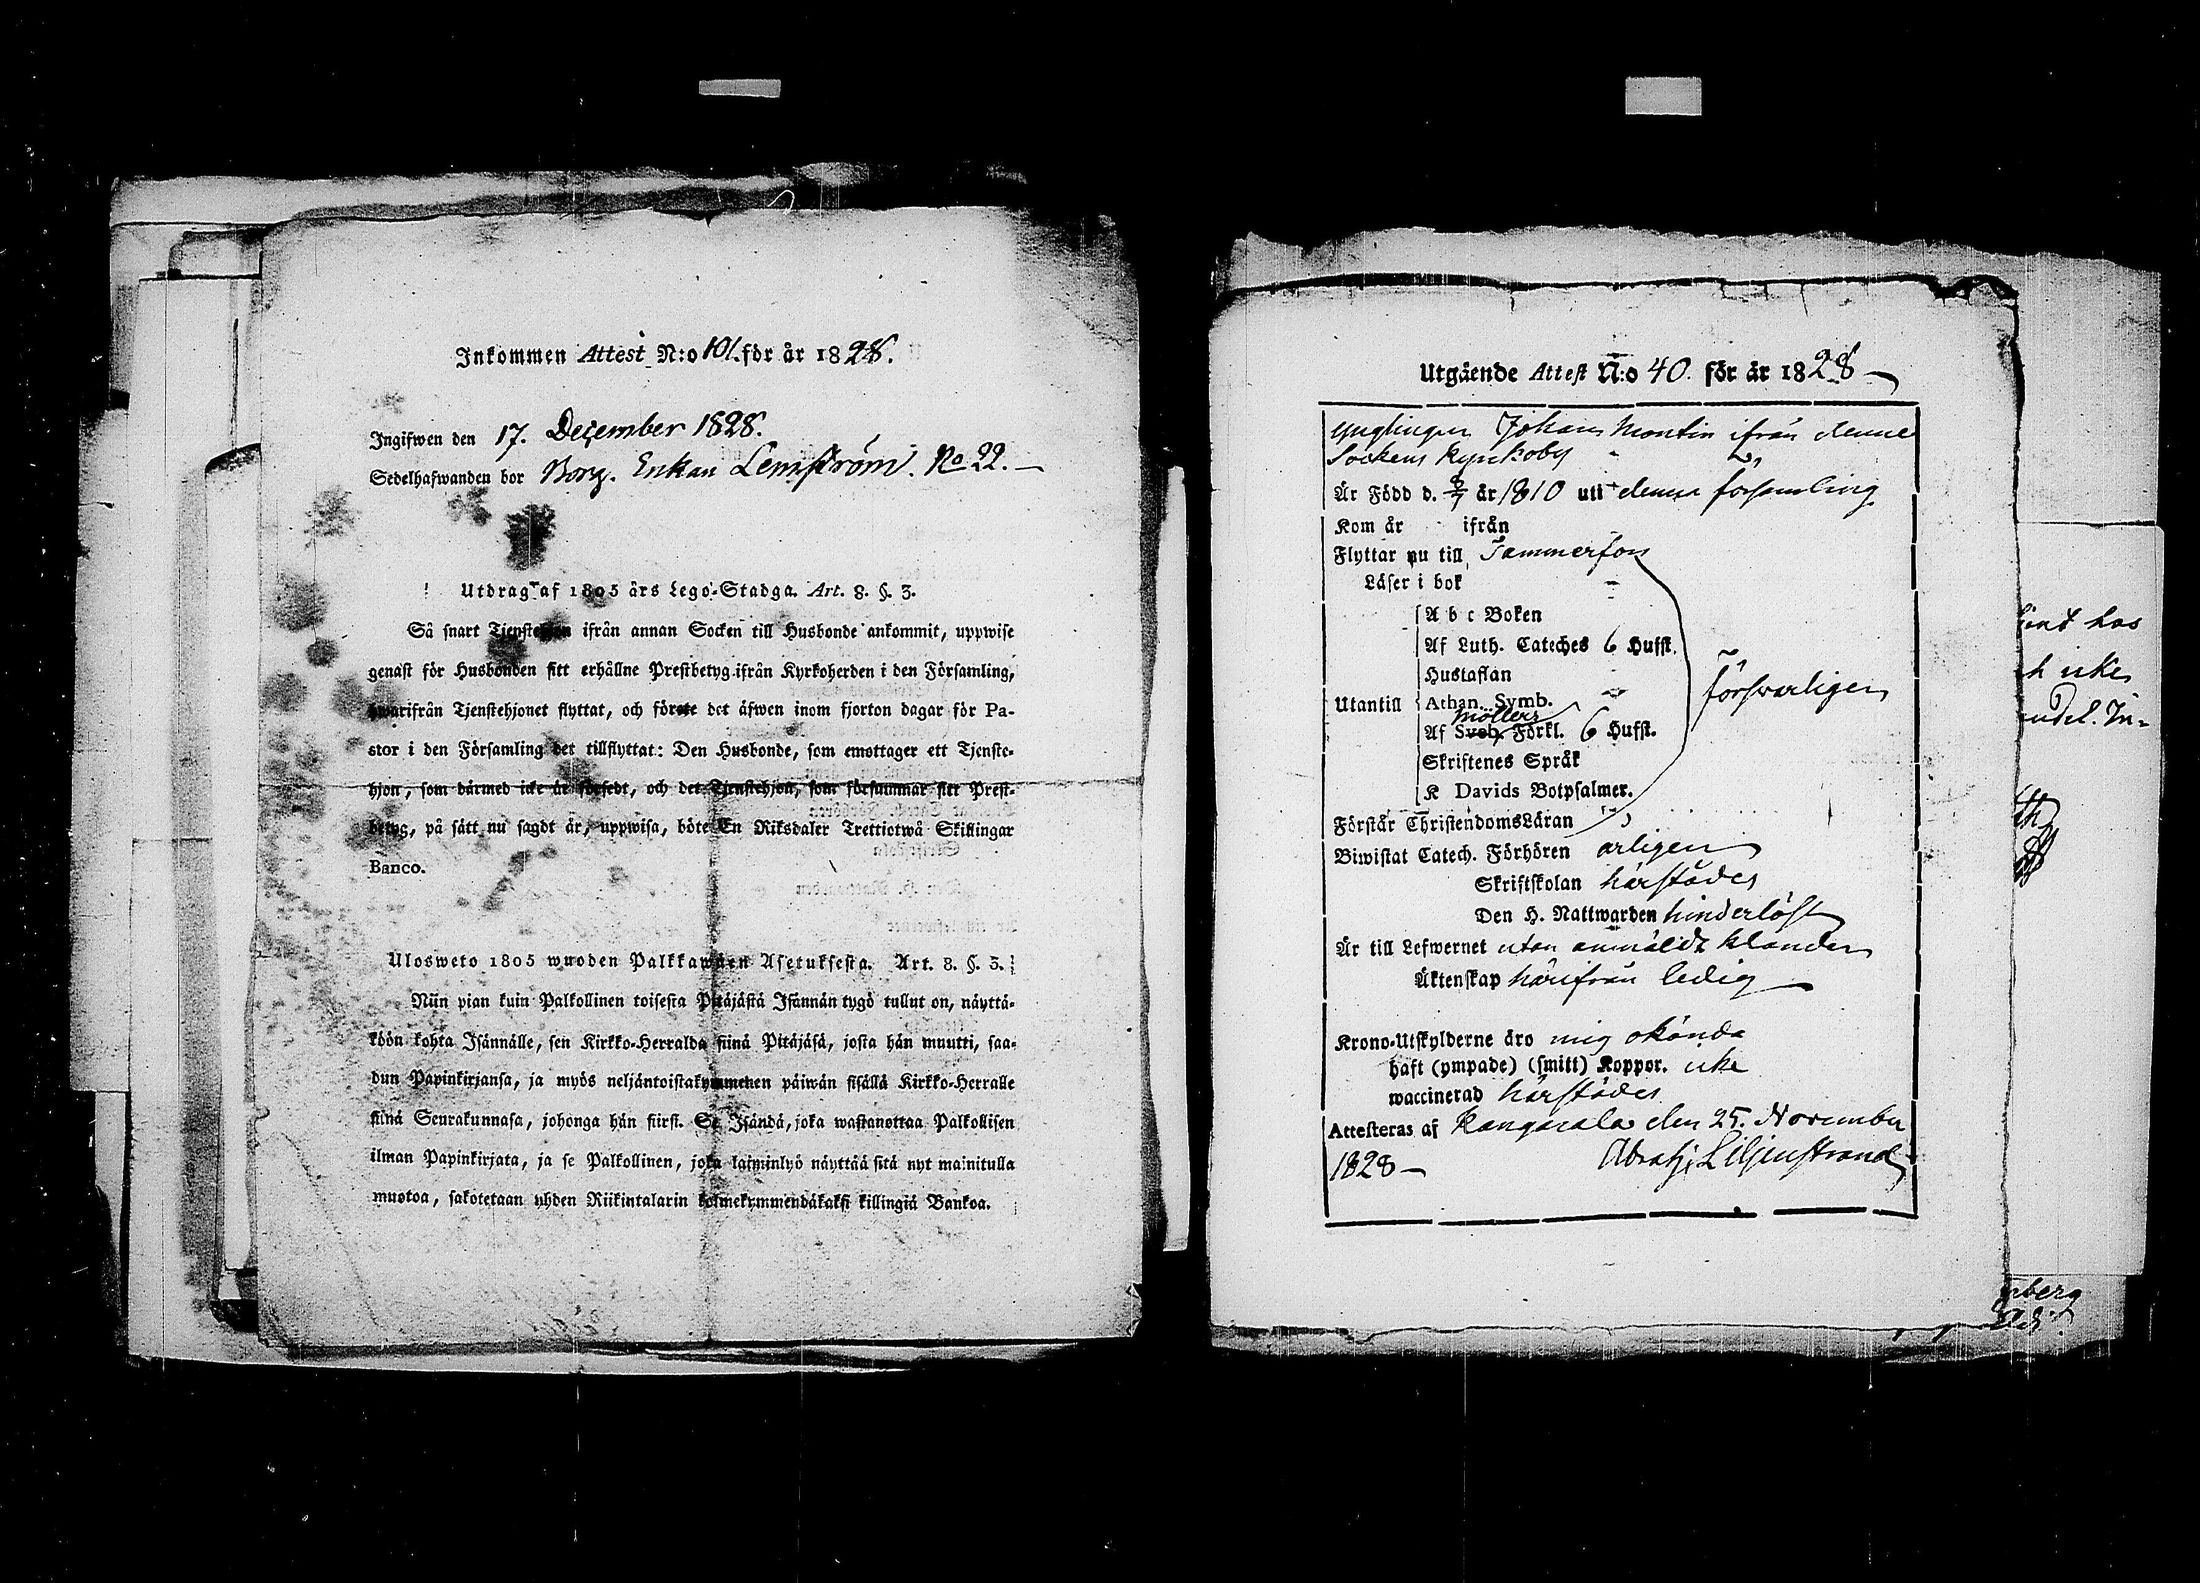 Inkommen Attest N:o 101. för år 1828.
Ingifwen den 17. December 1828.
Sedelhafwanden bor Borg. Enkan Lemström. No 22.
Utdrag af 1805 års Lego-Stadga. Art. 8. §. 3.
Så snart Tjenstehjon ifrån annan Socken till Husbonde ankommit, uppwise
genast för Husbonden sitt erhållne Prestbetyg ifrån Kyrkoherden i den Församling,
hwarifrån Tjenstehjonet flyttat, och förete det äfwen inom fjorton dagar för Pa-
stor i den Församling det tillflyttat: Den Husbonde, som emottager ett Tjenste-
hjon, som därmed icke är försedt, och det Tjenstehjon, som försummar sitt Prest-
betyg, på sätt nu sagdt är, uppwisa, böte En Riksdaler Trettiotwå Skillingar
Banco.
Ulosweto 1805 wuoden Palkkawäen Asetuksesta. Art. 8. §. 3.
Niin pian kuin Palkollinen toisesta Pitäjästä Isännän tygö tullut on, näyttä-
köön kohta Isännälle, sen Kirkko-Herralda siinä Pitäjäsä, josta hän muutti, saa-
dun Papinkirjansa, ja myös neljäntoistakymmenen päiwän sisällä Kirkko-Herralle
siinä Seurakunnasa, johonga hän siirst. Se Isändä, joka wastanottaa Palkollisen
ilman Papinkirjata, ja se Palkollinen, joka laiminlyö näyttää sitä nyt mainitulla
muotoa, sakotetaan yhden Riikintalarin kolmekymmendäkaksi killingiä Bankoa.
Utgående Attest N:o 40. för år 1828
Ynglingen Johan Montin ifrån denne
Sockens Kyrckoby
Är Född d. 9/7 år 1810 uti denna församling
Kom år ifrån
Flyttar nu till Tammerfors
Läser i bok
A b c Boken
Af Luth. Cateches 6 Hufst.
Hustaflan
Utantill Athan. Symb.
Möllers
Af Sveb. Förkl. 6 Hufst.
Skriftenes Språk
K Davids Botpsalmer.
försvarligen
Förstår ChristendomsLäran
Biwistat Catech. Förhören årligen
Skriftskolan härstädes
Den H. Nattwarden hinderlöst
Är till Lefwernet utan anmäldt klander
Äktenskap härifrån ledig
Krono-Utskylderne äro mig okända
haft (ympade) (smitt) Koppor. icke
waccinerad härstädes
Attesteras af Kangasala den 25. November
1828 Abrah; Liljenstrand
h icke